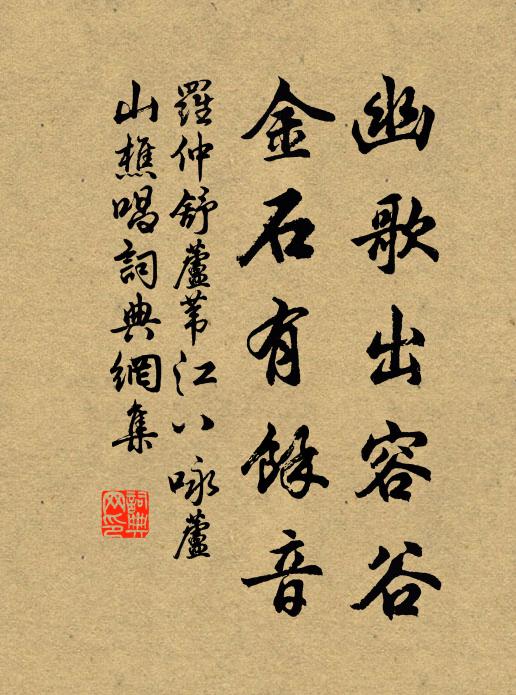 幽歌出容谷
金石有餘音
羅仲舒蘆葦江八咏蘆
山樵唱詞典網集
詞典